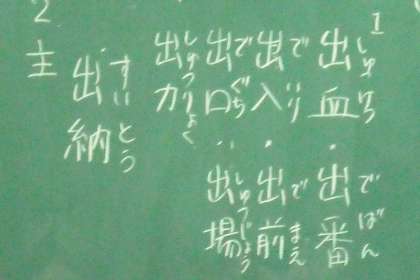 1
出血・出番
でばん
出入・出前
でいり でまえ
出口・出場
でぐち しゅつじょう
出力
しゅつりょく
出納
すいとう
2.
主